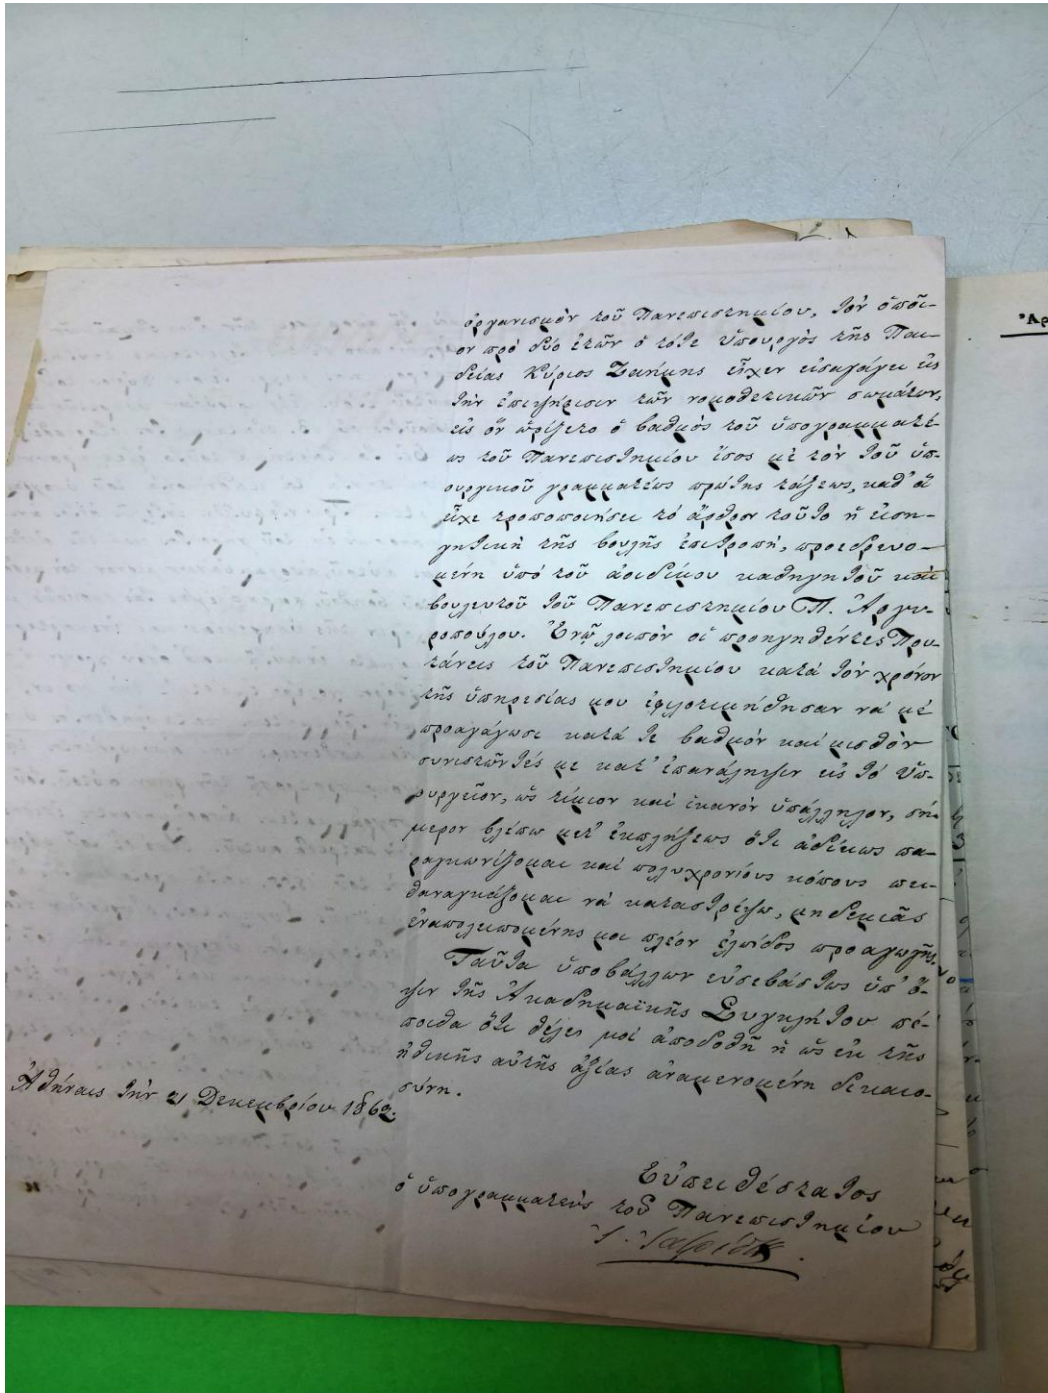 ὀργανισμὸν τοῦ Πανεπιστημίου, τὸν ὁποῖ-
ον πρὸ δύο ἐτῶν ὁ τότε ὑπουργὸς τῆς Παι-
δείας Κύριος Ζαήμης εἶχεν εἰσαγάγει εἰς
τὴν ἐπιψήφισιν τῶν νομοθετικῶν σωμάτων,
εἰς ὃν ὡρίζετο ὁ βαθμὸς τοῦ ὑπογραμματέ-
ως τοῦ Πανεπιστημίου ἴσος μὲ τὸν τοῦ ὑπ-
ουργικοῦ γραμματέως πρώτης τάξεως, καθ' ἃ
εἶχε τροποποιήσει τὸ ἄρθρον τοῦτο ἡ εἰση-
γητικὴ τῆς βουλῆς ἐπιτροπή, προεδρευο-
μένη ὑπὸ τοῦ ἀοιδίμου καθηγητοῦ καὶ
βουλευτοῦ τοῦ Πανεπιστημίου Π. Ἀργυ-
ροπούλου. Ἐνῷ λοιπὸν οἱ προηγηθέντες Πρυ-
τάνεις τοῦ Πανεπιστημίου κατὰ τὸν χρόνον
τῆς ὑπηρεσίας μου ἐφιλοτιμήθησαν νὰ μὲ
προαγάγωσι κατά τε βαθμὸν καὶ μισθὸν
συνιστῶντές με κατ' ἐπανάληψιν εἰς τὸ ὑπ-
ουργεῖον, ὡς τίμιον καὶ ἱκανὸν ὑπάλληλον, σή-
μερον βλέπω μετ' ἐκπλήξεως ὅτι ἀδίκως πα-
ραγκωνίζομαι καὶ πολυχρονίους κόπους πει-
θαναγκάζομαι νὰ καταστρέψω, μηδεμιᾶς
ἐναπολειπομένης μοι πλέον ἐλπίδος προαγωγῆς.
Ταῦτα ὑποβάλλων εὐσεβάστως ὑπ' ὄ-
ψιν τῆς Ἀκαδημαϊκῆς Συγκλήτου πέ-
ποιθα ὅτι θέλει μοὶ ἀποδοθῆ ἡ ὡς ἐκ τῆς
ἠθικῆς αὐτῆς ἀξίας ἀναμενομένη δικαιο-
σύνη.
Ἀθήναις τὴν 21 Δεκεμβρίου 1862.
Εὐπειθέστατος
ὁ ὑπογραμματεὺς τοῦ Πανεπιστημίου